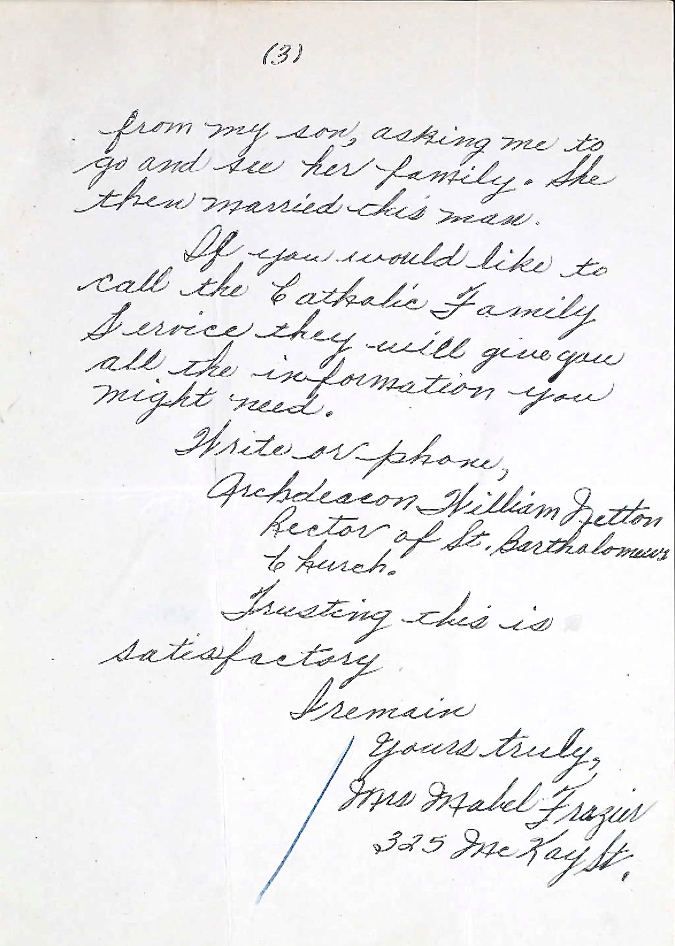 (3)
from my son, asking me to
go and see her family. She
then married this man.
If you would like to
call the Catholic Family
Service they will give you
all the information you
might need.
Write or phone,
Archdeacon William Netton
Rector of St. Bartholomews
Church.
Trusting this is
satisfactory
I remain
Yours truly,
Mrs Mabel Frazier
325 McKay St.